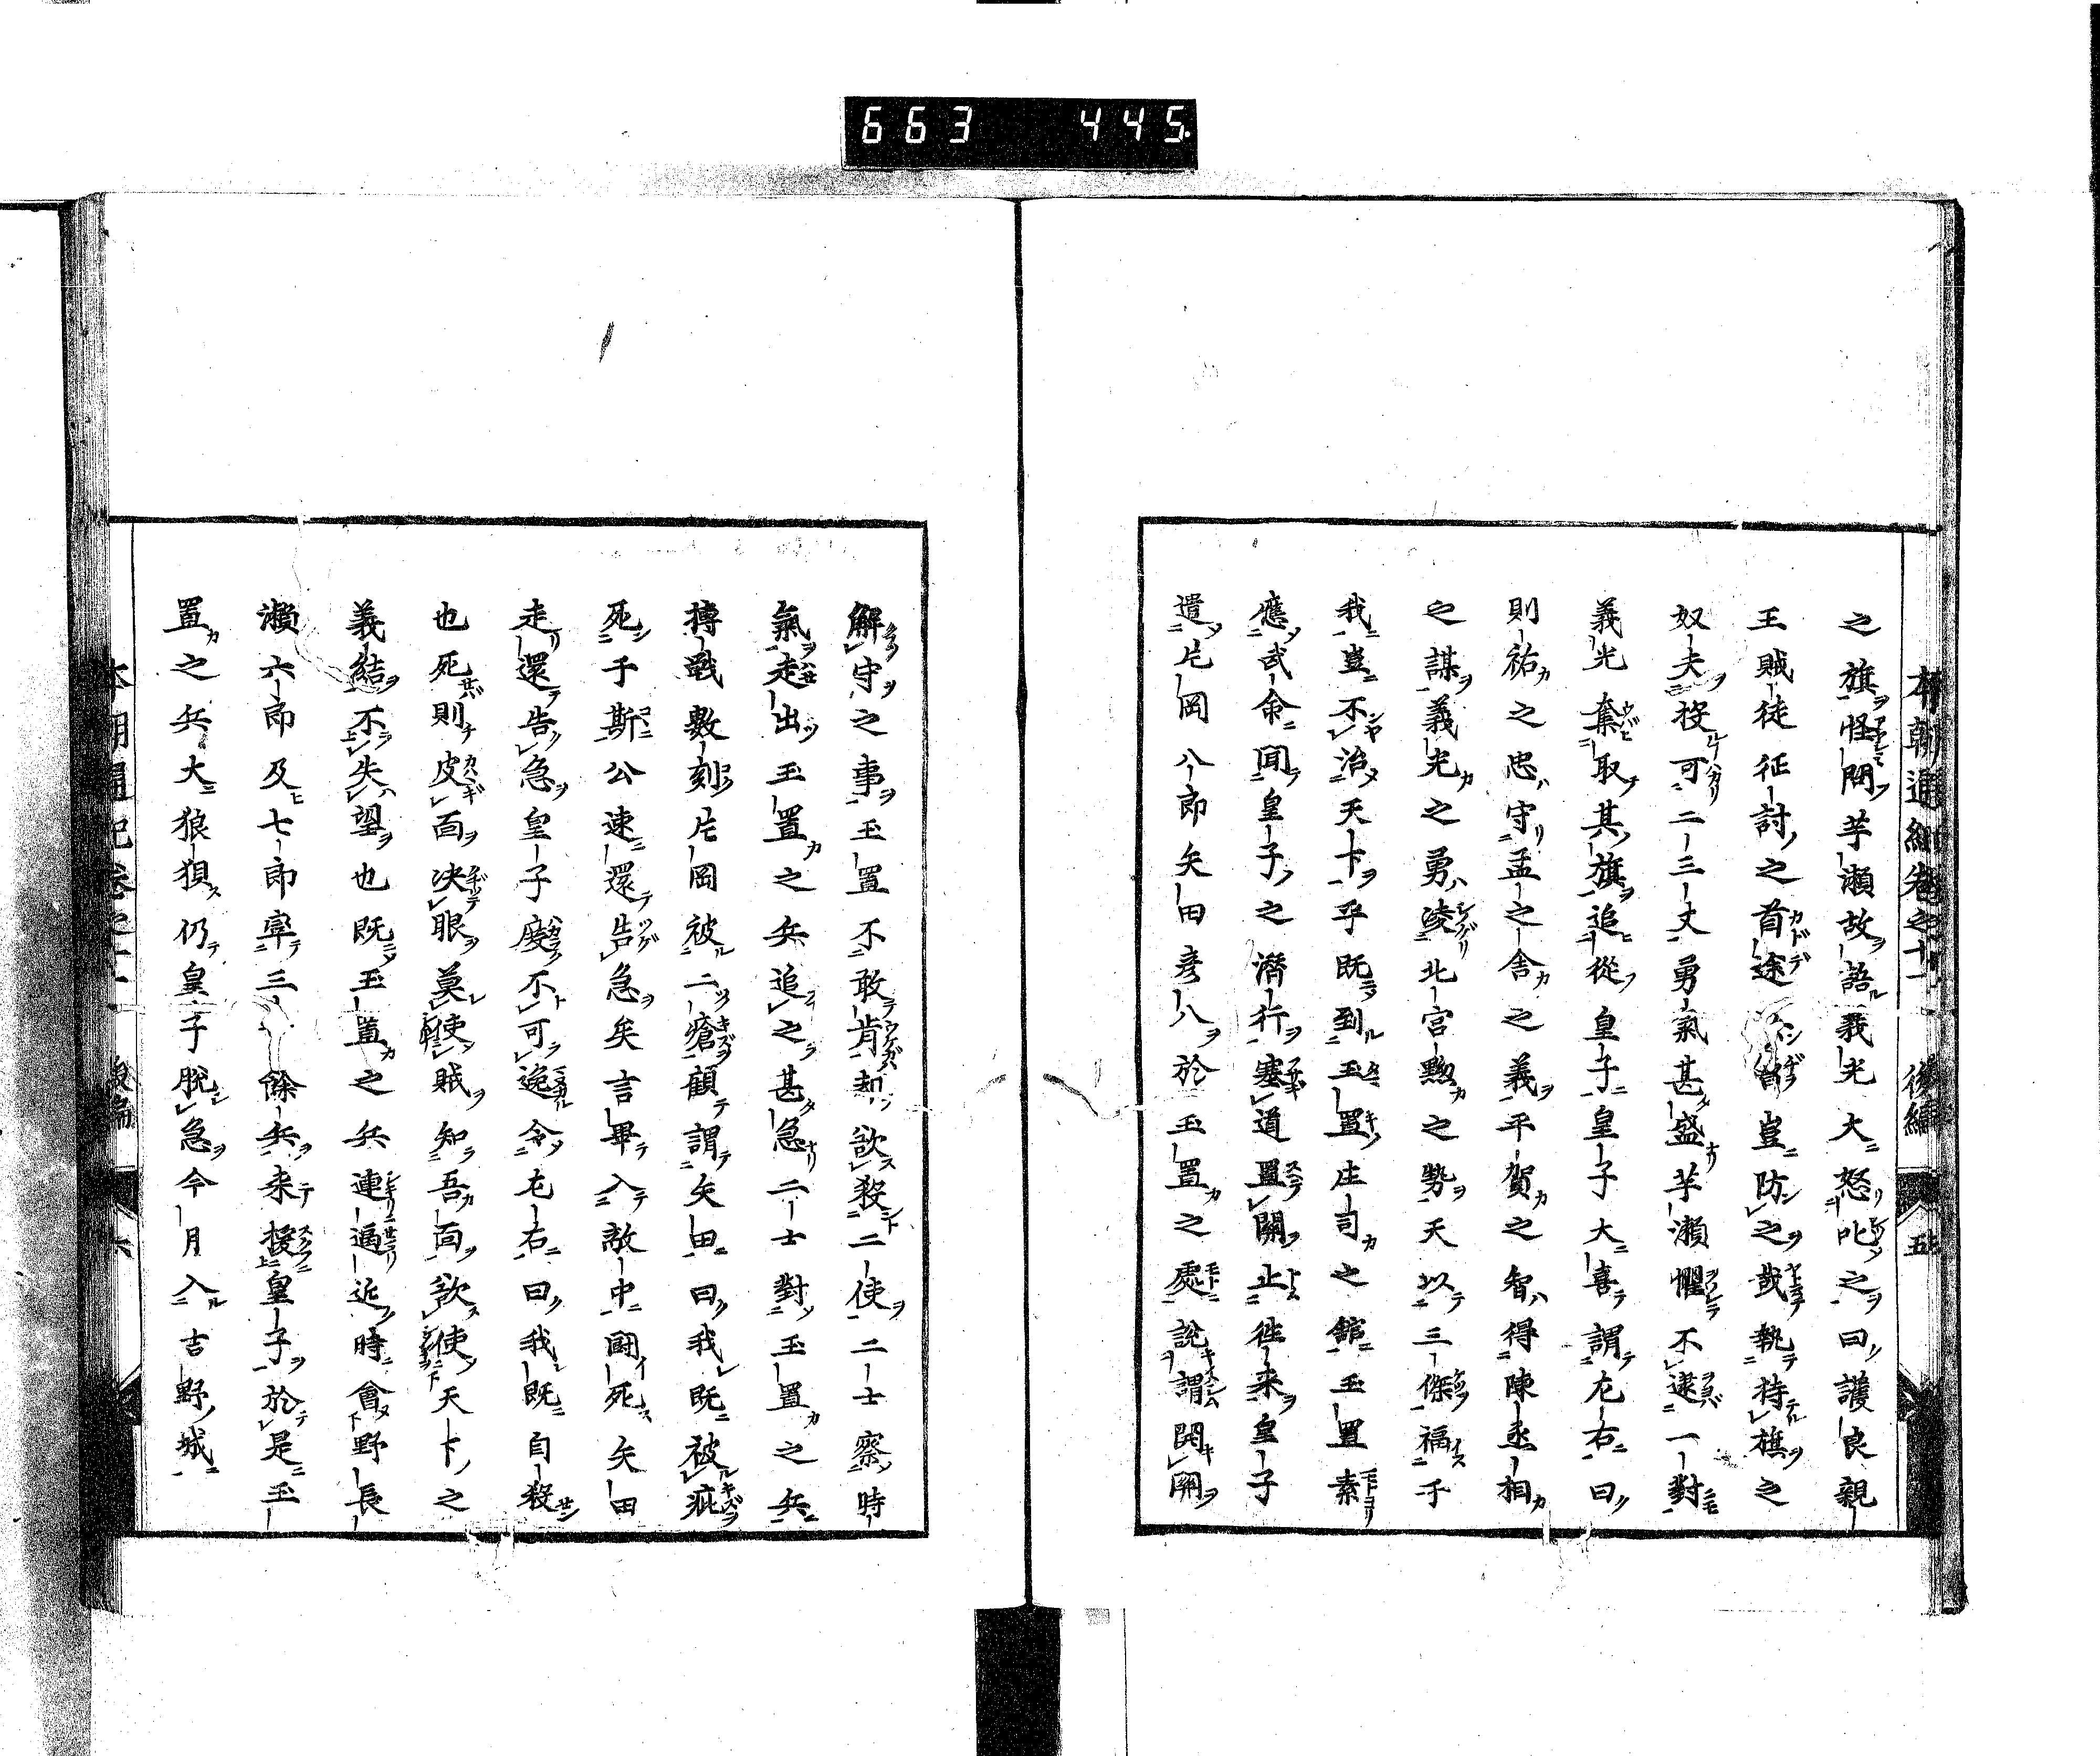 663 445.
本朝通紀卷之十一 後編 五
之旗怪問芋瀬故語義光大怒叱之曰護良親
王賊徒征討之首途豈防之哉執持旗之
奴夫投可二三丈勇氣甚盛芋瀬懼不逮一對
義光奪取其旗追從皇子皇子大喜謂左右曰
則祐之忠守孟之舎之義平賀之智得陳丞相
之謀義光之勇凌北宮黝之勢天以三傑福于
我豈不治天下乎既到玉置庄司之舘玉置素
應武命聞皇子之潛行塞道置關止徃来皇子
遣片岡八郎矢田彦八於玉置之處説謂開關
解守之事玉置不敢肯却欲殺二使二士察時
氣走出玉置之兵追之甚急二士對玉置之兵
搏戰數刻片岡被二瘡顧謂矢田曰我既被疵
死于斯公速還告急矣言畢入敵中鬪死矢田
走還告急皇子度不可逸令左右曰我既自殺
也死則皮面决眼莫使賊知吾面欲使天下之
義結不失望也既玉置之兵連逼近時會野長
瀬六郎及七郎率三餘兵来援皇子於是玉
置之兵大狼狽仍皇子脱急今月入吉野城
本朝通紀卷之十一 後編 六